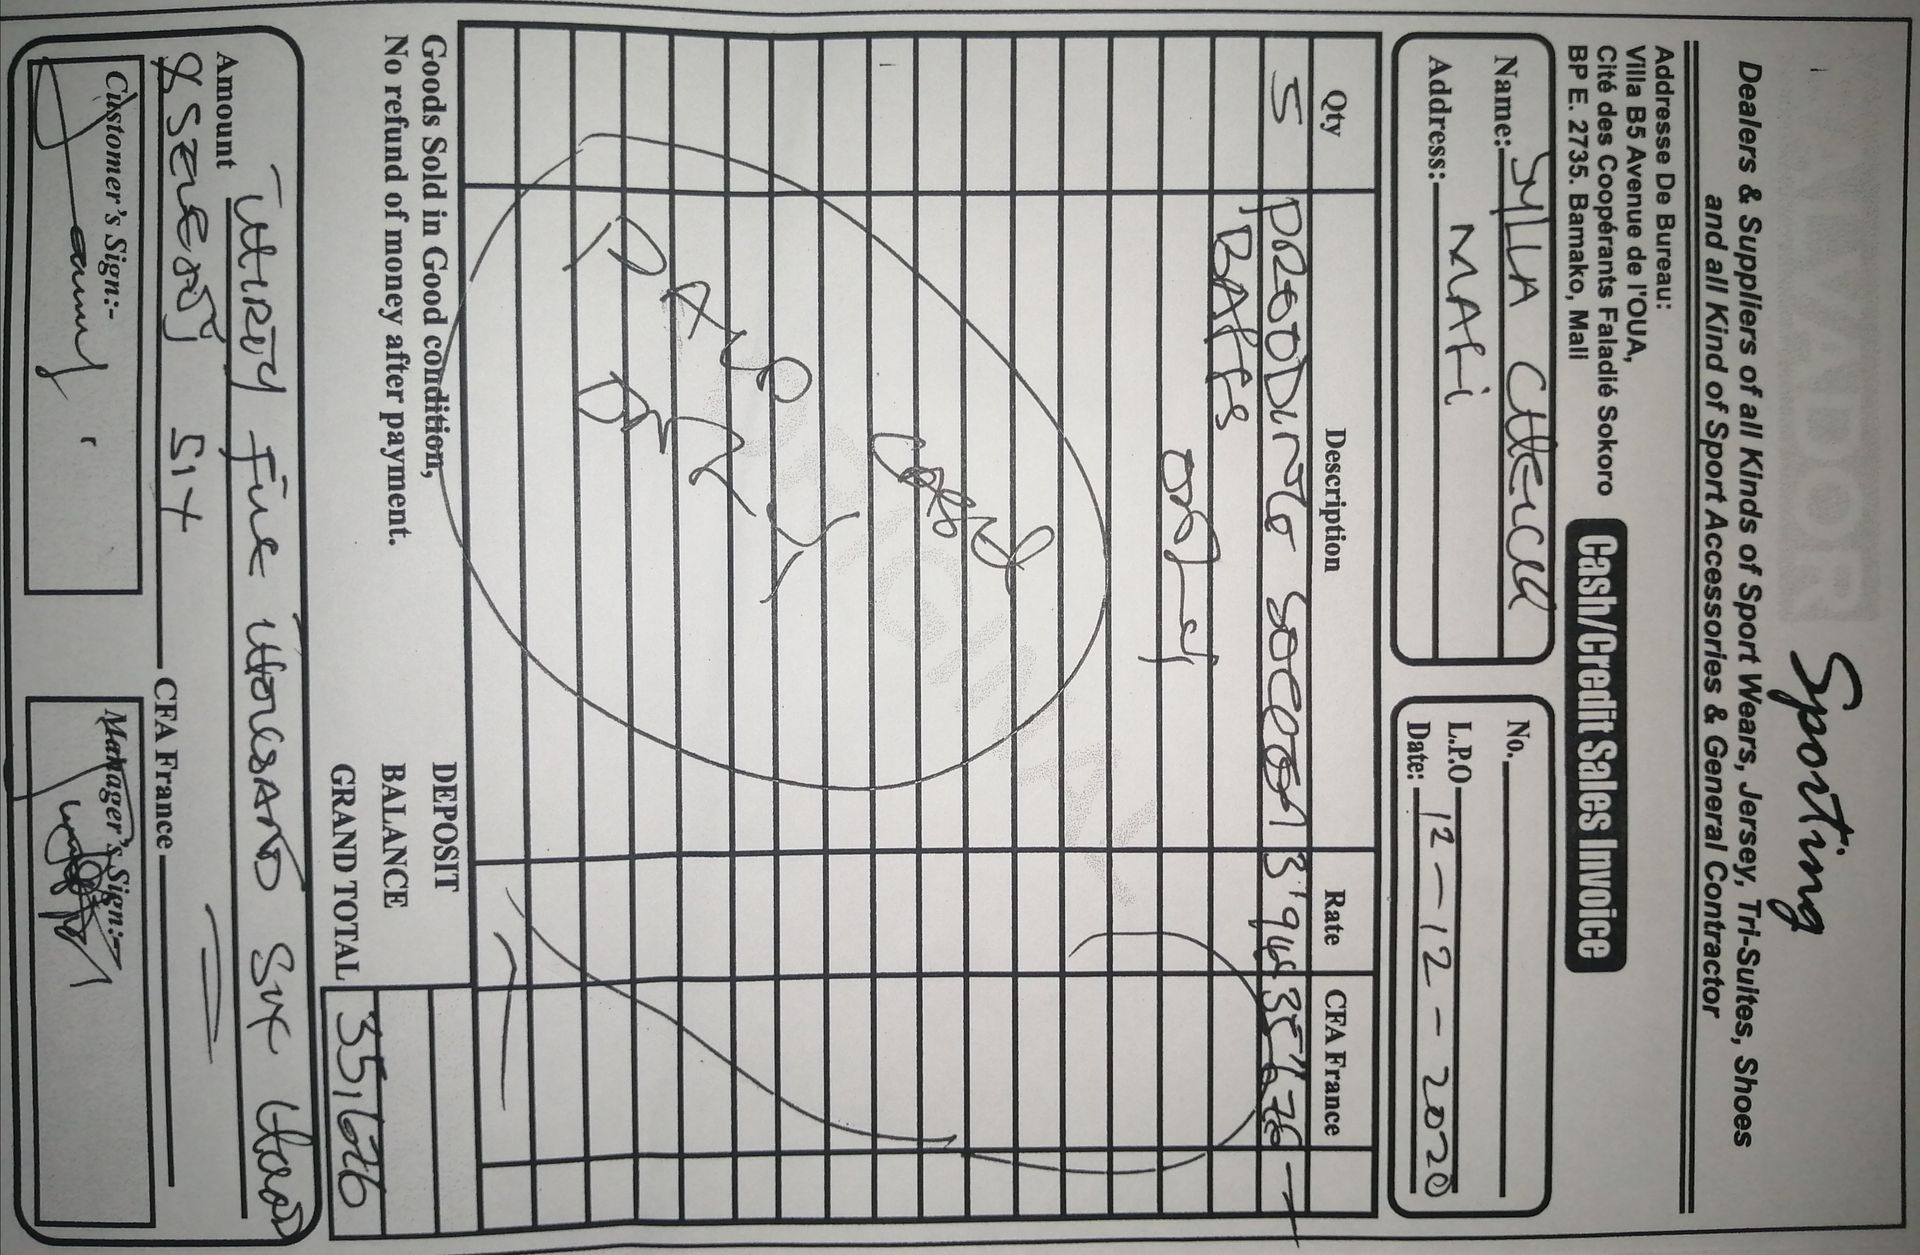 Sporting
Dealers & Suppliers of all Kinds of Sport Wears, Jersey, Tri-Suites, Shoes
and all Kind of Sport Accessories & General Contractor
Addresse De Bureau:
Villa B5 Avenue de l'OUA,
Cité des Coopérants Faladié Sokoro
BP E. 2735. Bamako, Mali
Cash/Credit Sales Invoice
Name:- SYLLA
Address:- MALI
No.
L.P.O
Date: 12-12-2020
Qty Description Rate CFA France
5
BALLS
ONLY
Goods Sold in Good condition,
No refund of money after payment.
DEPOSIT
BALANCE
GRAND TOTAL 35,676
Amount THIRTY FIVE THOUSAND SIX
& SEVENTY SIX CFA France
Customer's Sign:-
Manager's Sign:-